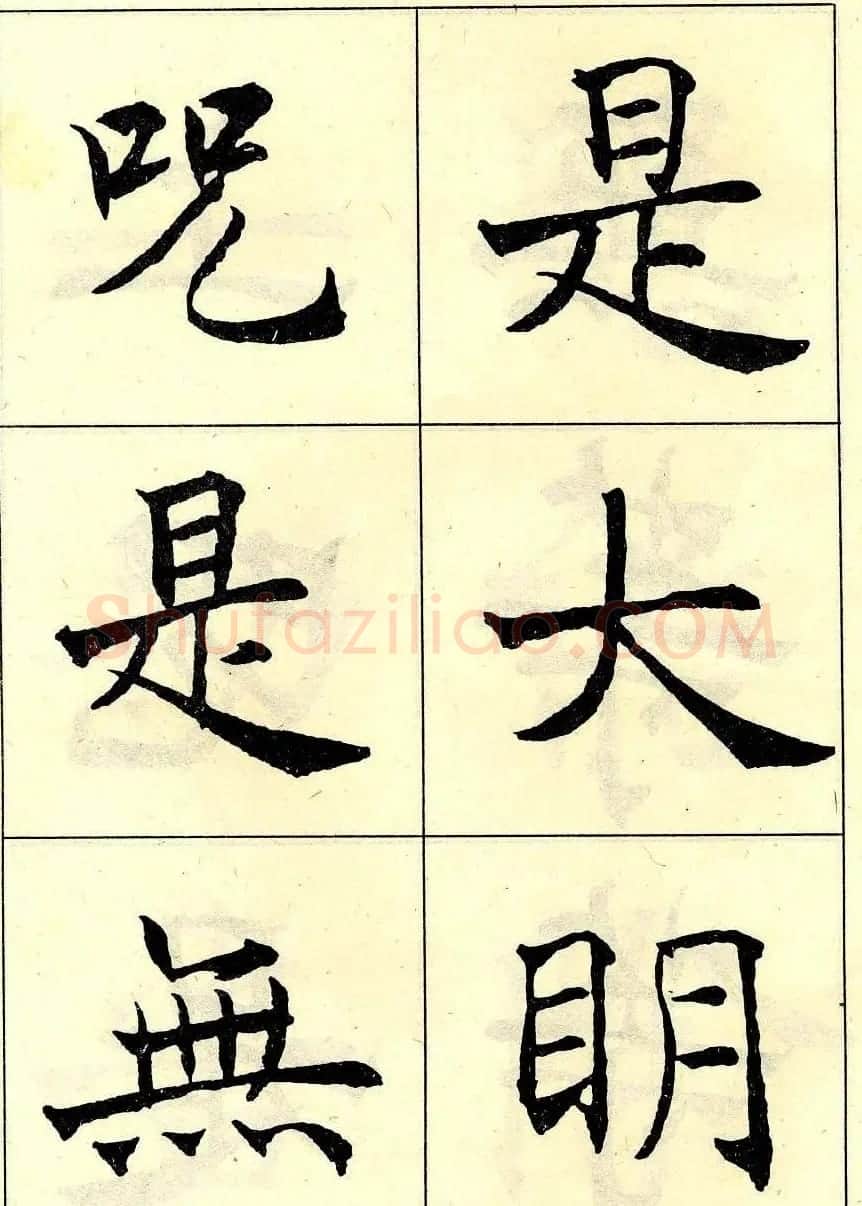 是大明
咒是無
Shufaziliao.COM